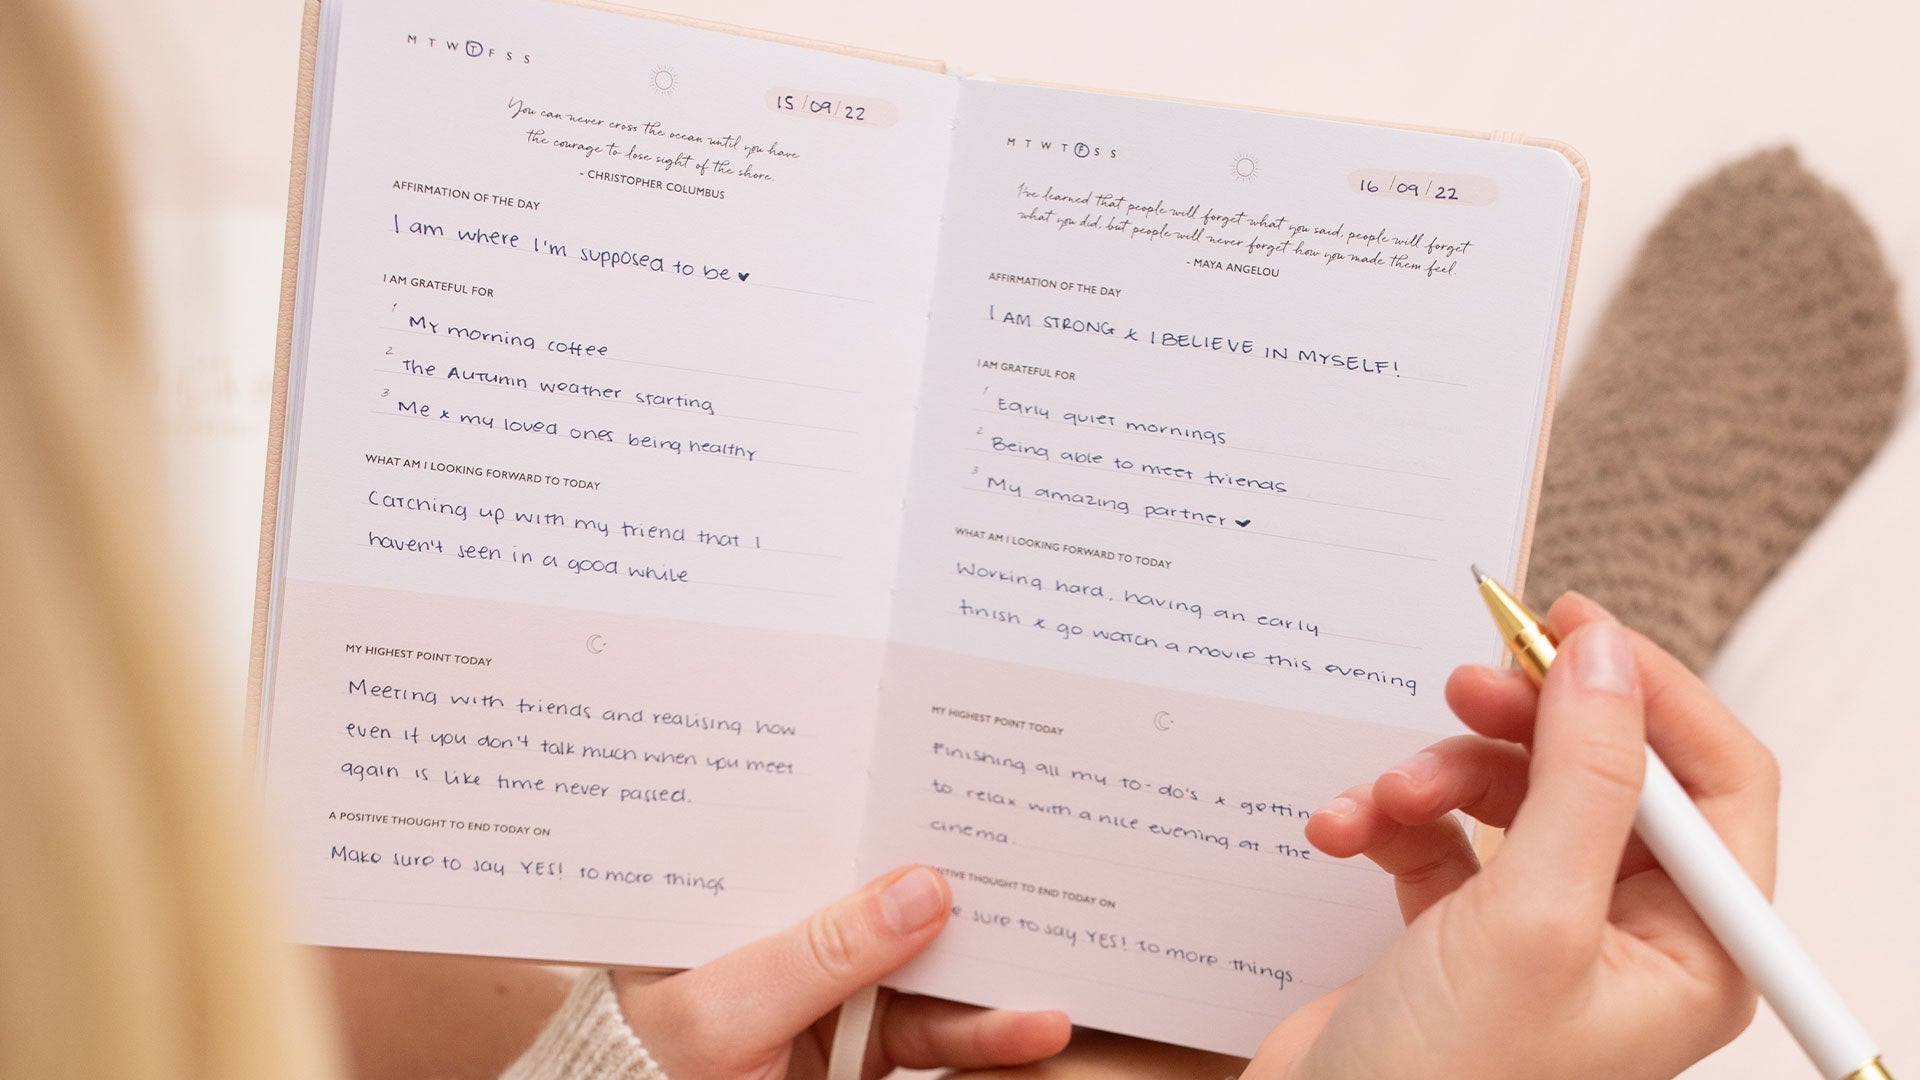 M T W T F S S
15/09/22
You can never cross the ocean until you have
the courage to lose sight of the shore.
- CHRISTOPHER COLUMBUS
AFFIRMATION OF THE DAY
I am where I'm supposed to be ♥
I AM GRATEFUL FOR
1 My morning coffee
2 The Autumn weather starting
3 Me & my loved ones being healthy
WHAT AM I LOOKING FORWARD TO TODAY
Catching up with my friend that I
haven't seen in a good while
MY HIGHEST POINT TODAY
Meeting with friends and realising how
even if you don't talk much when you meet
again is like time never passed.
A POSITIVE THOUGHT TO END TODAY ON
Make sure to say YES! to more things
M T W T F S S
16/09/22
I've learned that people will forget what you said, people will forget
what you did, but people will never forget how you made them feel.
- MAYA ANGELOU
AFFIRMATION OF THE DAY
I AM STRONG & I BELIEVE IN MYSELF!
I AM GRATEFUL FOR
1 Early quiet mornings
2 Being able to meet friends
3 My amazing partner ♥
WHAT AM I LOOKING FORWARD TO TODAY
Working hard, having an early
finish & go watch a movie this evening
MY HIGHEST POINT TODAY
Finishing all my to-do's & gettin
to relax with a nice evening at the
cinema.
THOUGHT TO END TODAY ON
sure to say YES! to more things